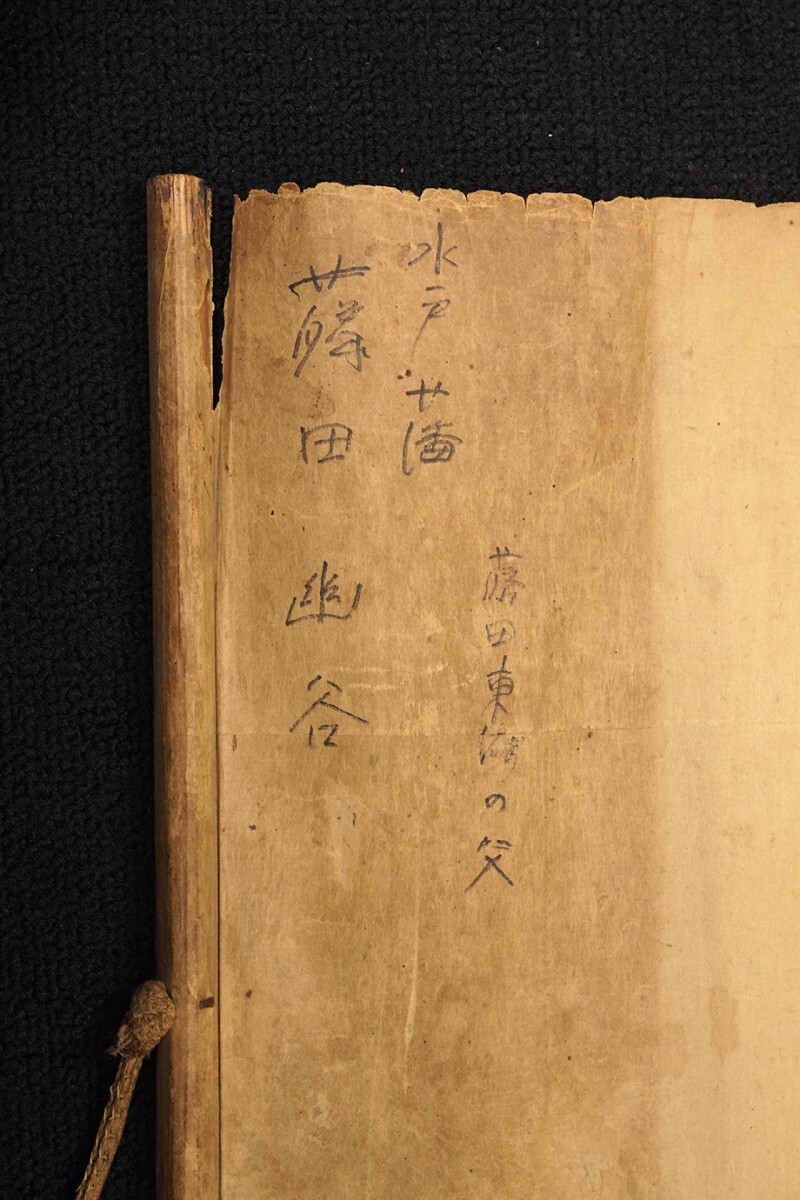 藤田東湖の父
水戸藩
藤田幽谷